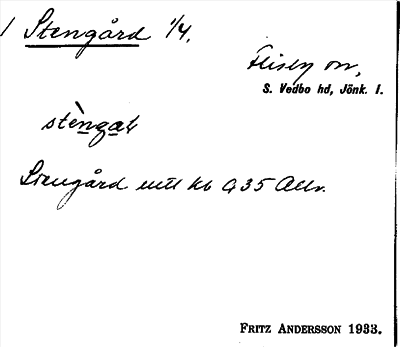 1 Stengård 1/4.
Flisby sn,
S. Vedbo hd, Jönk. l.
stèngaɫ
Stengård mtl kb 0,35 Allv.
FRITZ ANDERSSON 1933.